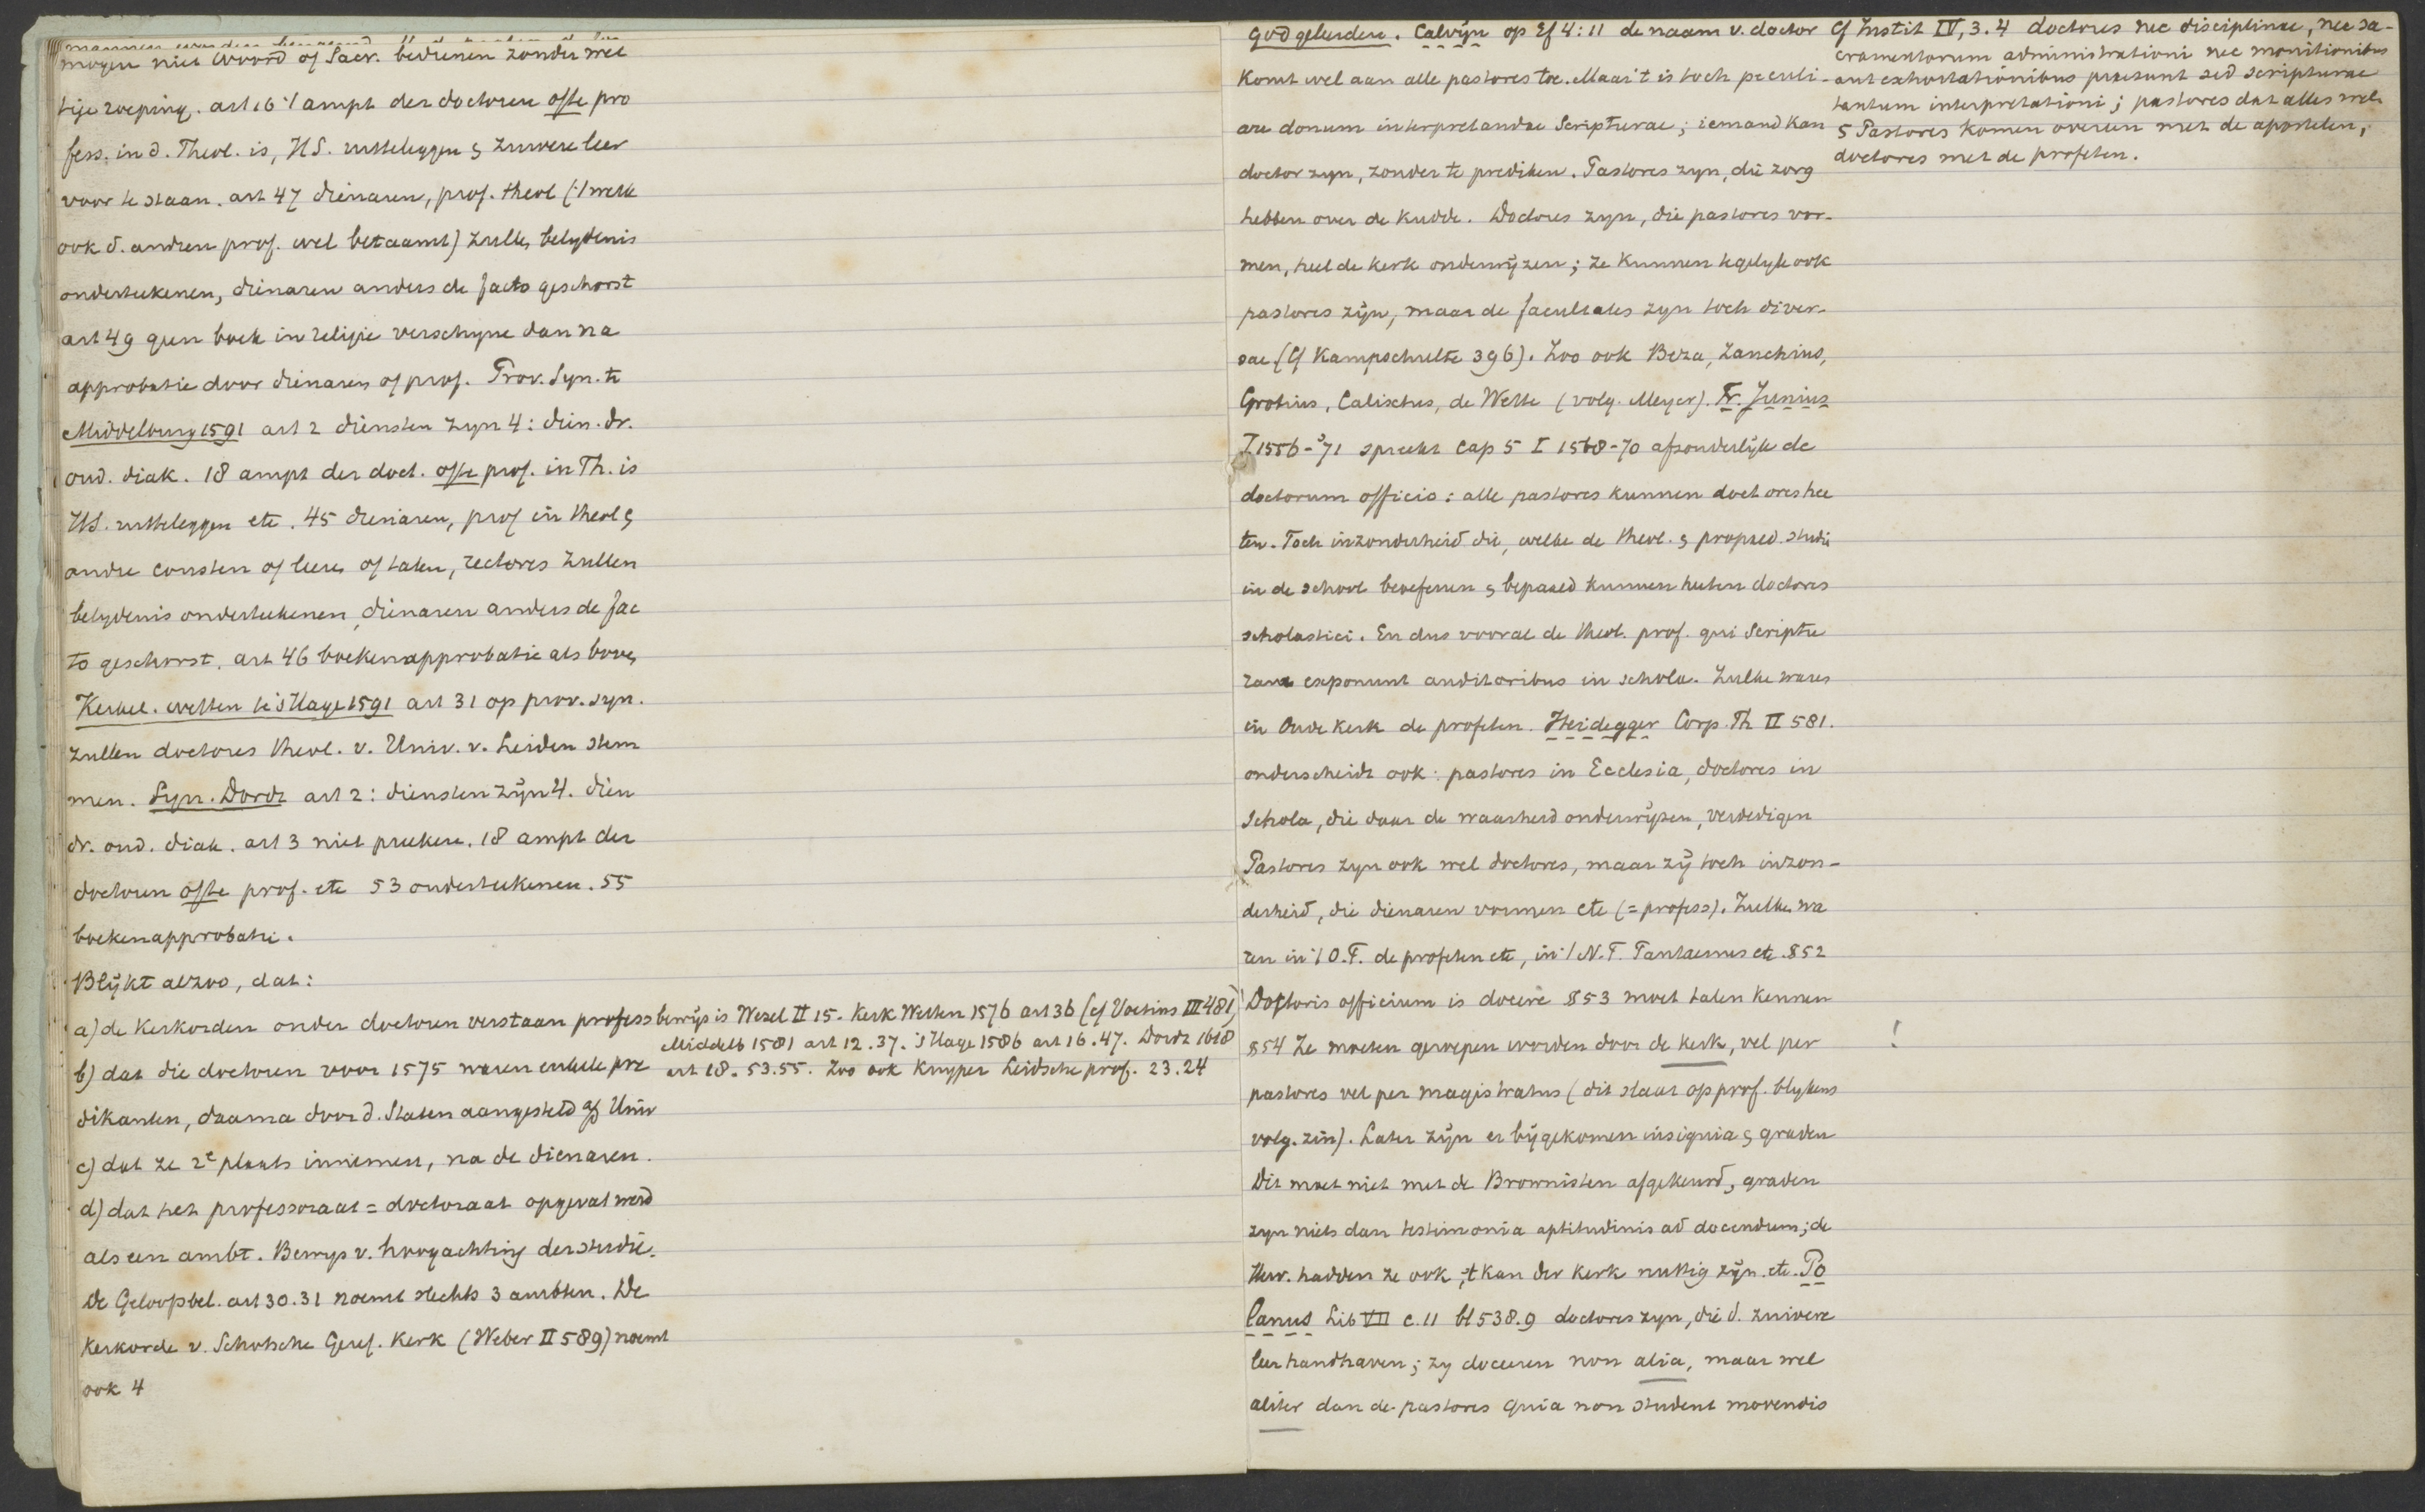 mogen niet Woord of Sacr. bedienen zonder wet
tije roeping. art 16 't ampt der doctoren ofte pro
fess. in d. Theol. is, H.S. uutteleggen & zuivere leer
voor te staan. art 47 dienaren, prof. theol ('t welk
ook d. andren prof. wel betaamt) zulle, belydenis
onderteekenen, dienaren anders de facto geschorst
art 49 geen boek in religie verschyne dan na
approbatie door dienaren of prof. Prov. Syn. te
Middelburg 1591 art 2 diensten zyn 4: dien. dr.
oud. diak. 18 ampt der doct. ofte prof. in Th. is
H.S. uutteleggen etc. 45 dienaren, prof in theol &
andre consten of leere of talen, rectores zullen
belydenis onderteekenen, dienaren anders de fac
to geschorst. art 46 boekenapprobatie als bove,
Kerkel. wetten te 's Hage 1591 art 31 op prov. syn.
zullen doctores theol. v. Univ. v. Leiden stem
men. Syn. Dordr art 2: diensten zijn 4. dien
dr. oud. diak. art 3 niet preeken. 18 ampt der
doctoren ofte prof. etc 53 onderteekenen. 55
boekenapprobatie.
Blijkt alzoo, dat:
a) de Kerkorden onder doctoren verstaan profess bewijs is Wezel II 15. Kerk. Wetten 1576 art 36 (cf Voetius III 481)
Middelb 1581 art 12. 37. 's Hage 1586 art 16. 47. Dordr 1618
b) dat die doctoren voor 1575 waren enkele pre art 18. 53. 55. Zoo ook Kuyper Leidsche prof. 23. 24
dikanten, daarna door d. Staten aangesteld af Univ
c) dat ze 2e plaats innemen, na de dienaren.
d) dat het professoraat = doctoraat opgevat werd
als een ambt. Bewys v. hoogachting der studie.
De Geloofsbel. art 30. 31 noemt slechts 3 ambten. De
Kerkorde v. Schotsche Geref. Kerk (Weber II 589) noemt
ook 4
godgeleerden. Calvijn op Ef 4:11 de naam v. doctor
Komt wel aan alle pastores toe. Maar 't is toch peculi-
are donum interpretandae Scripturae; iemand Kan
doctor zyn, zonder te prediken. Pastores zyn, die zorg
hebben over de kudde. Doctores zyn, die pastores vor-
men, heel de kerk onderwijzen; ze kunnen tegelyk ook
pastores zijn, maar de facultates zyn toch diver-
sae (Cf Kampschulte 396). Zoo ook Beza, Zanchius,
Grotius, Calixtus, de Wette (volg. Meyer). Fr. Junius
I 1556-'71 spreekt Cap 5 I 1568-70 afzonderlijk de
doctorum officio: alle pastores kunnen doctores hee
ten. Toch inzonderheid die, welke de theol. & propaed. studie
in de school beoefenen & bepaald kunnen heeten doctores
scholastici. En dus vooral de theol. prof. qui Scriptu
ram exponunt auditoribus in schola. Zulke waren
in Oude Kerk de profeten. Heidegger Corp. Th II 581.
onderscheidt ook: pastores in Ecclesia, doctores in
Schola, die daar de waarheid onderwijzen, verdedigen
Pastores zyn ook wel doctores, maar zij toch inzon-
derheid, die dienaren vormen etc (= profess). Zulke wa
ren in 't O.T. de profeten etc, in 't N.T. Pantaenus etc. §52
Doctoris officium is docere §53 moet talen kennen
§54 Ze moeten geroepen worden door de kerk, vel per !
pastores vel per magistratus (dit slaat op prof. blykens
volg. zin). Later zijn er bijgekomen insignia & graden
Dit moet niet met de Brownisten afgekeurd, graden
zyn niets dan testimonia aptitudinis ad docendum; de
Herv. hadden ze ook; 't kan der Kerk nuttig zijn. etc. Po
lanus Lib VII c. 11 bl 538.9 doctores zyn, die d. zuivere
leer handhaven; zy doceeren non alia, maar wel
aliter dan de pastores quia non student movendis
Cf Instit IV, 3. 4 doctores nec disciplinae, nec sa-
cramentorum administrationi nec monitionibus
aut exhortationibus praesunt sed scripturae
tantum interpretationi; pastores dat alles wel.
§ Pastores komen overeen met de apostelen,
doctores met de profeten.